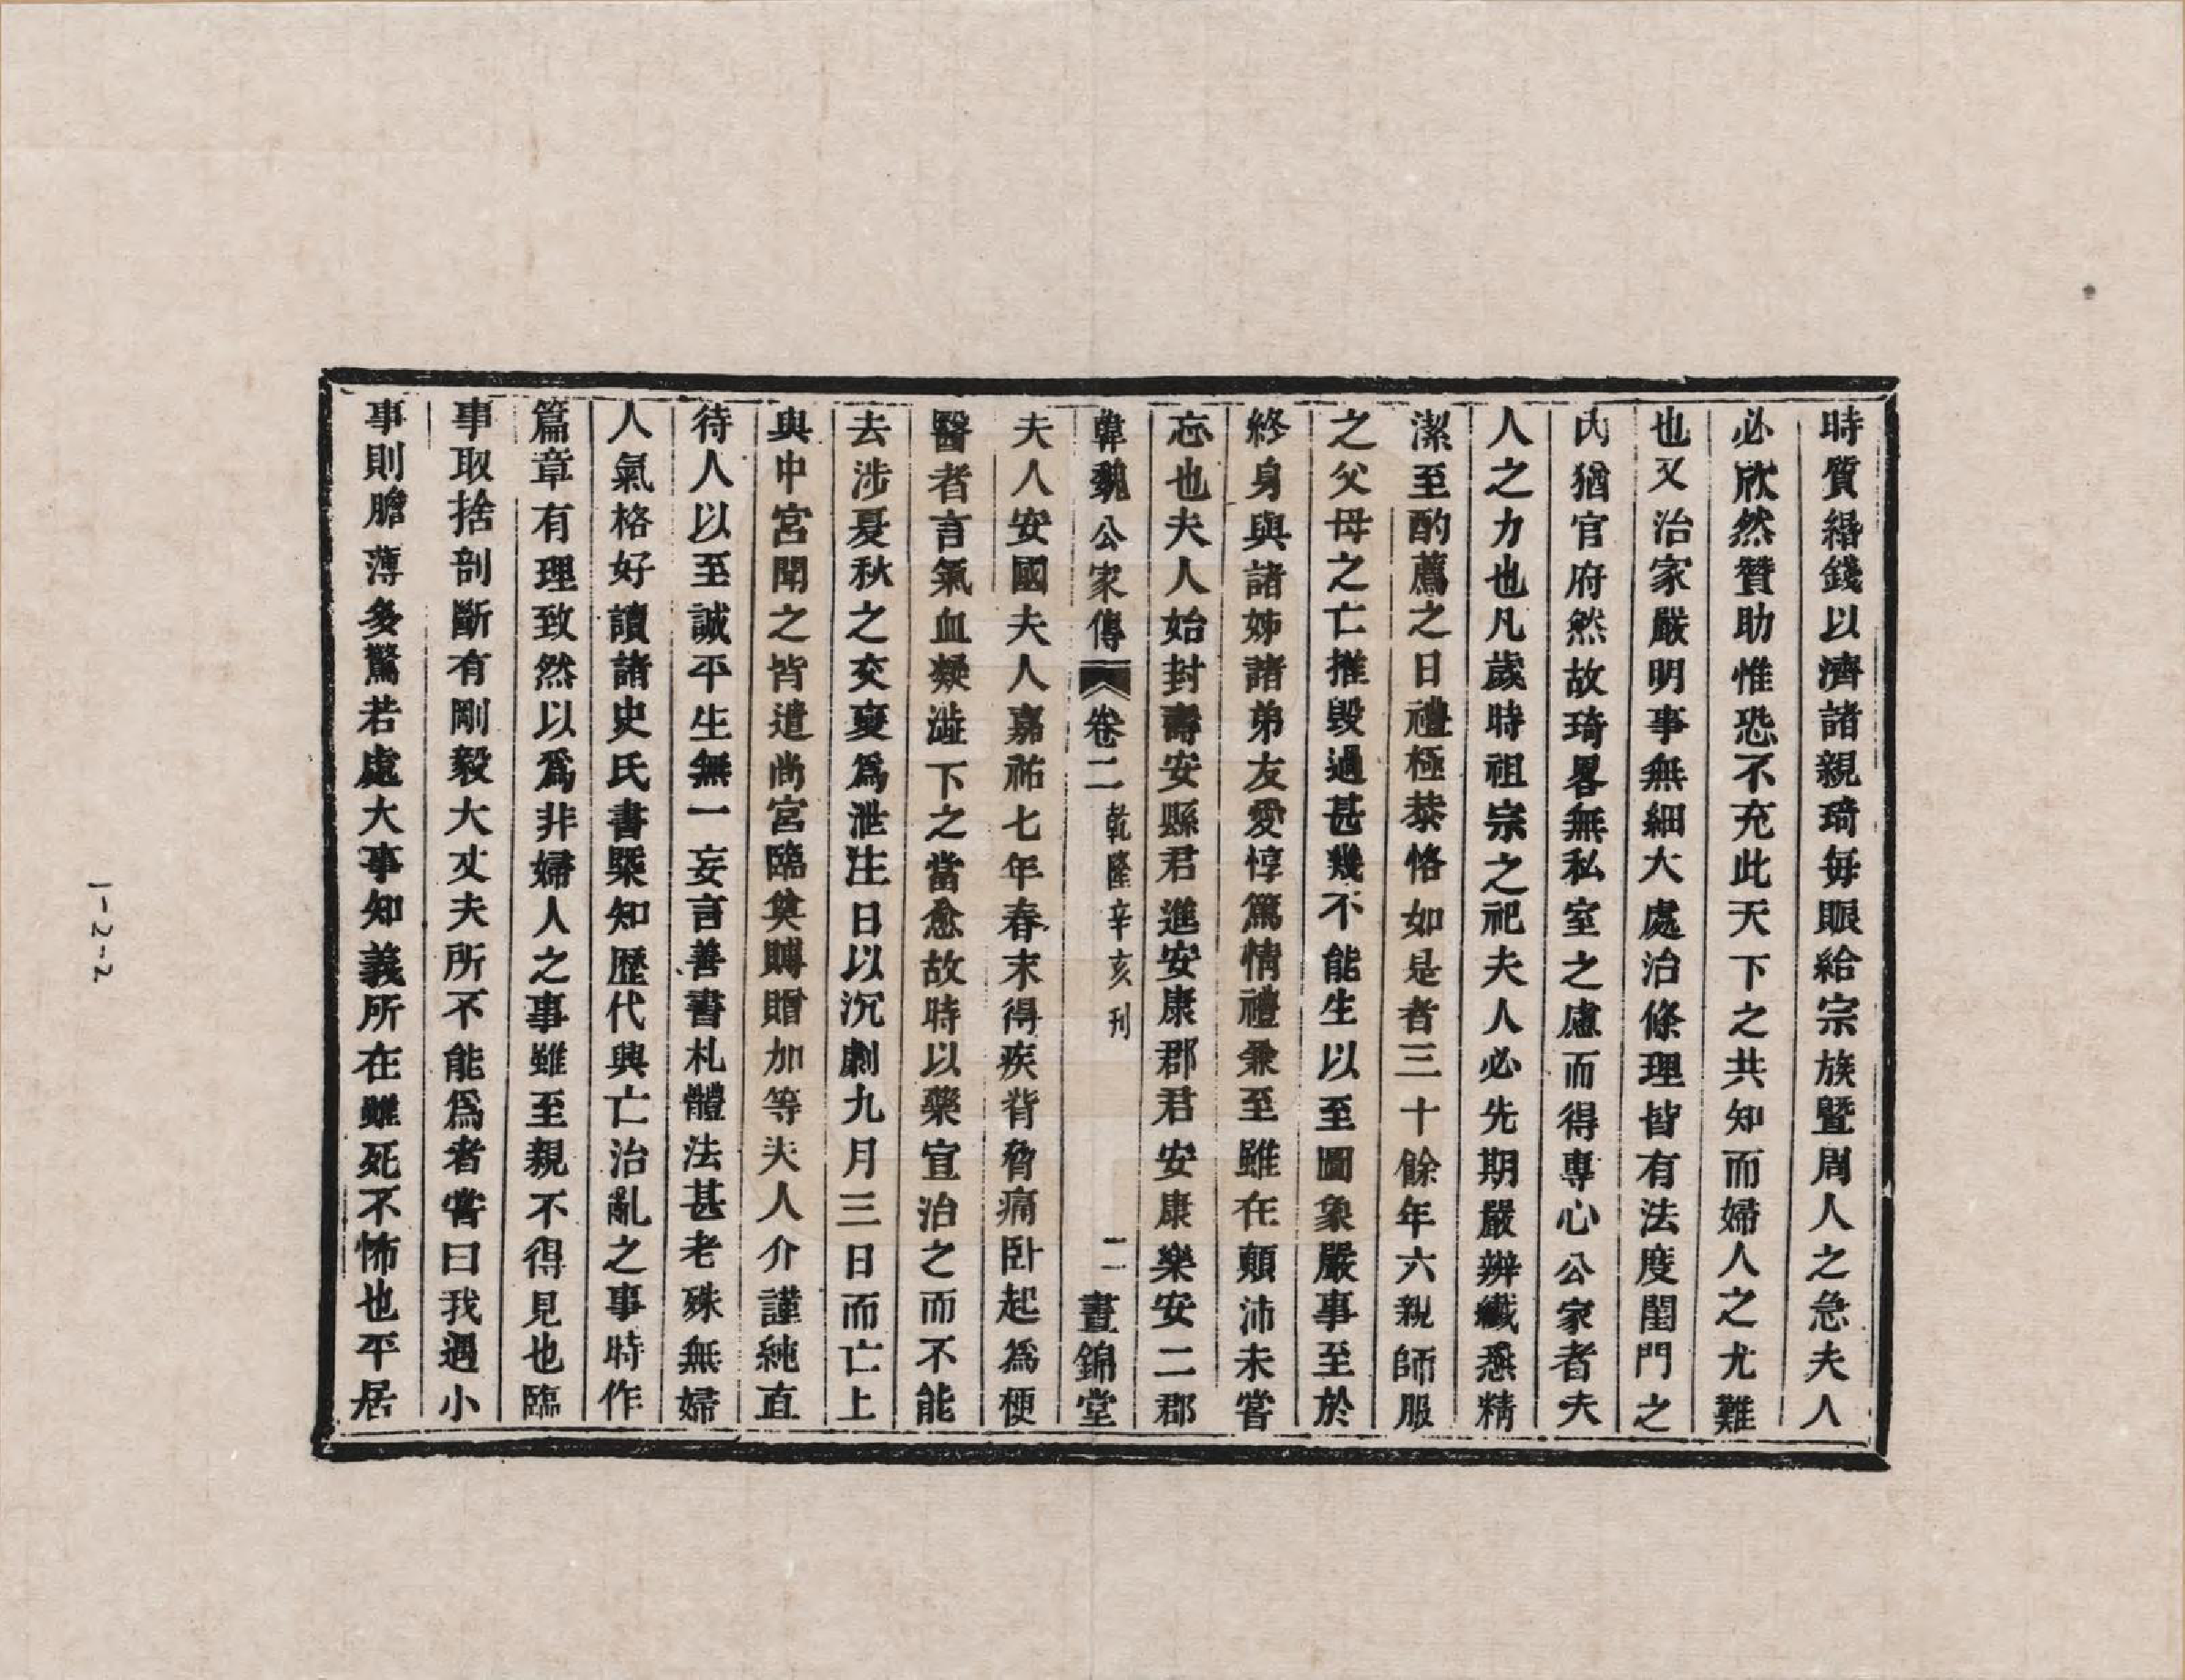 時質緡錢以濟諸親琦每賑給宗族曁周人之急夫人
必欣然贊助惟恐不充此天下之共知而婦人之尤難
也又治家嚴明事無細大處治條理皆有法度閨門之
內猶官府然故琦畧無私室之慮而得專心公家者夫
人之力也凡歲時祖宗之祀夫人必先期嚴辦纖悉精
潔至酌薦之日禮極恭恪如是者三十餘年六親師服
之父母之亡摧毀過甚幾不能生以至圖象嚴事至於
終身與諸姊諸弟友愛惇篤情禮兼至雖在顛沛未嘗
忘也夫人始封壽安縣君進安康郡君安康樂安二郡
韓魏公家傳 卷二 乾隆辛亥刊 二 晝錦堂
夫人安國夫人嘉祐七年春末得疾背脅痛卧起爲梗
醫者言氣血凝澁下之當愈故時以藥宣治之而不能
去涉夏秋之交變爲泄注日以沉劇九月三日而亡上
與中宮聞之皆遣尚宮臨奠賻贈加等夫人介謹純直
待人以至誠平生無一妄言善書札體法甚老殊無婦
人氣格好讀諸史氏書槩知歷代興亡治亂之事時作
篇章有理致然以爲非婦人之事雖至親不得見也臨
事取捨剖斷有剛毅大丈夫所不能爲者嘗曰我遇小
事則膽薄多驚若處大事知義所在雖死不怖也平居
1-2-2